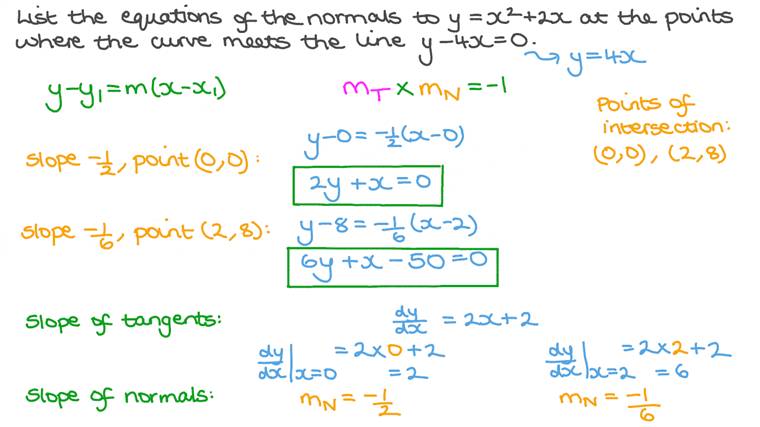 List the equations of the normals to y = x² + 2x at the points
where the curve meets the line y - 4x = 0.
↝ y = 4x
y - y₁ = m(x - x₁)
m_T × m_N = -1
Points of
intersection:
(0,0), (2,8)
y - 0 = -1/2 (x - 0)
Slope -1/2, point (0,0):
2y + x = 0
Slope -1/6, point (2,8):
y - 8 = -1/6 (x - 2)
6y + x - 50 = 0
Slope of tangents:
dy/dx = 2x + 2
dy/dx | x=0 = 2 × 0 + 2
= 2
dy/dx | x=2 = 2 × 2 + 2
= 6
Slope of normals:
m_N = -1/2
m_N = -1/6